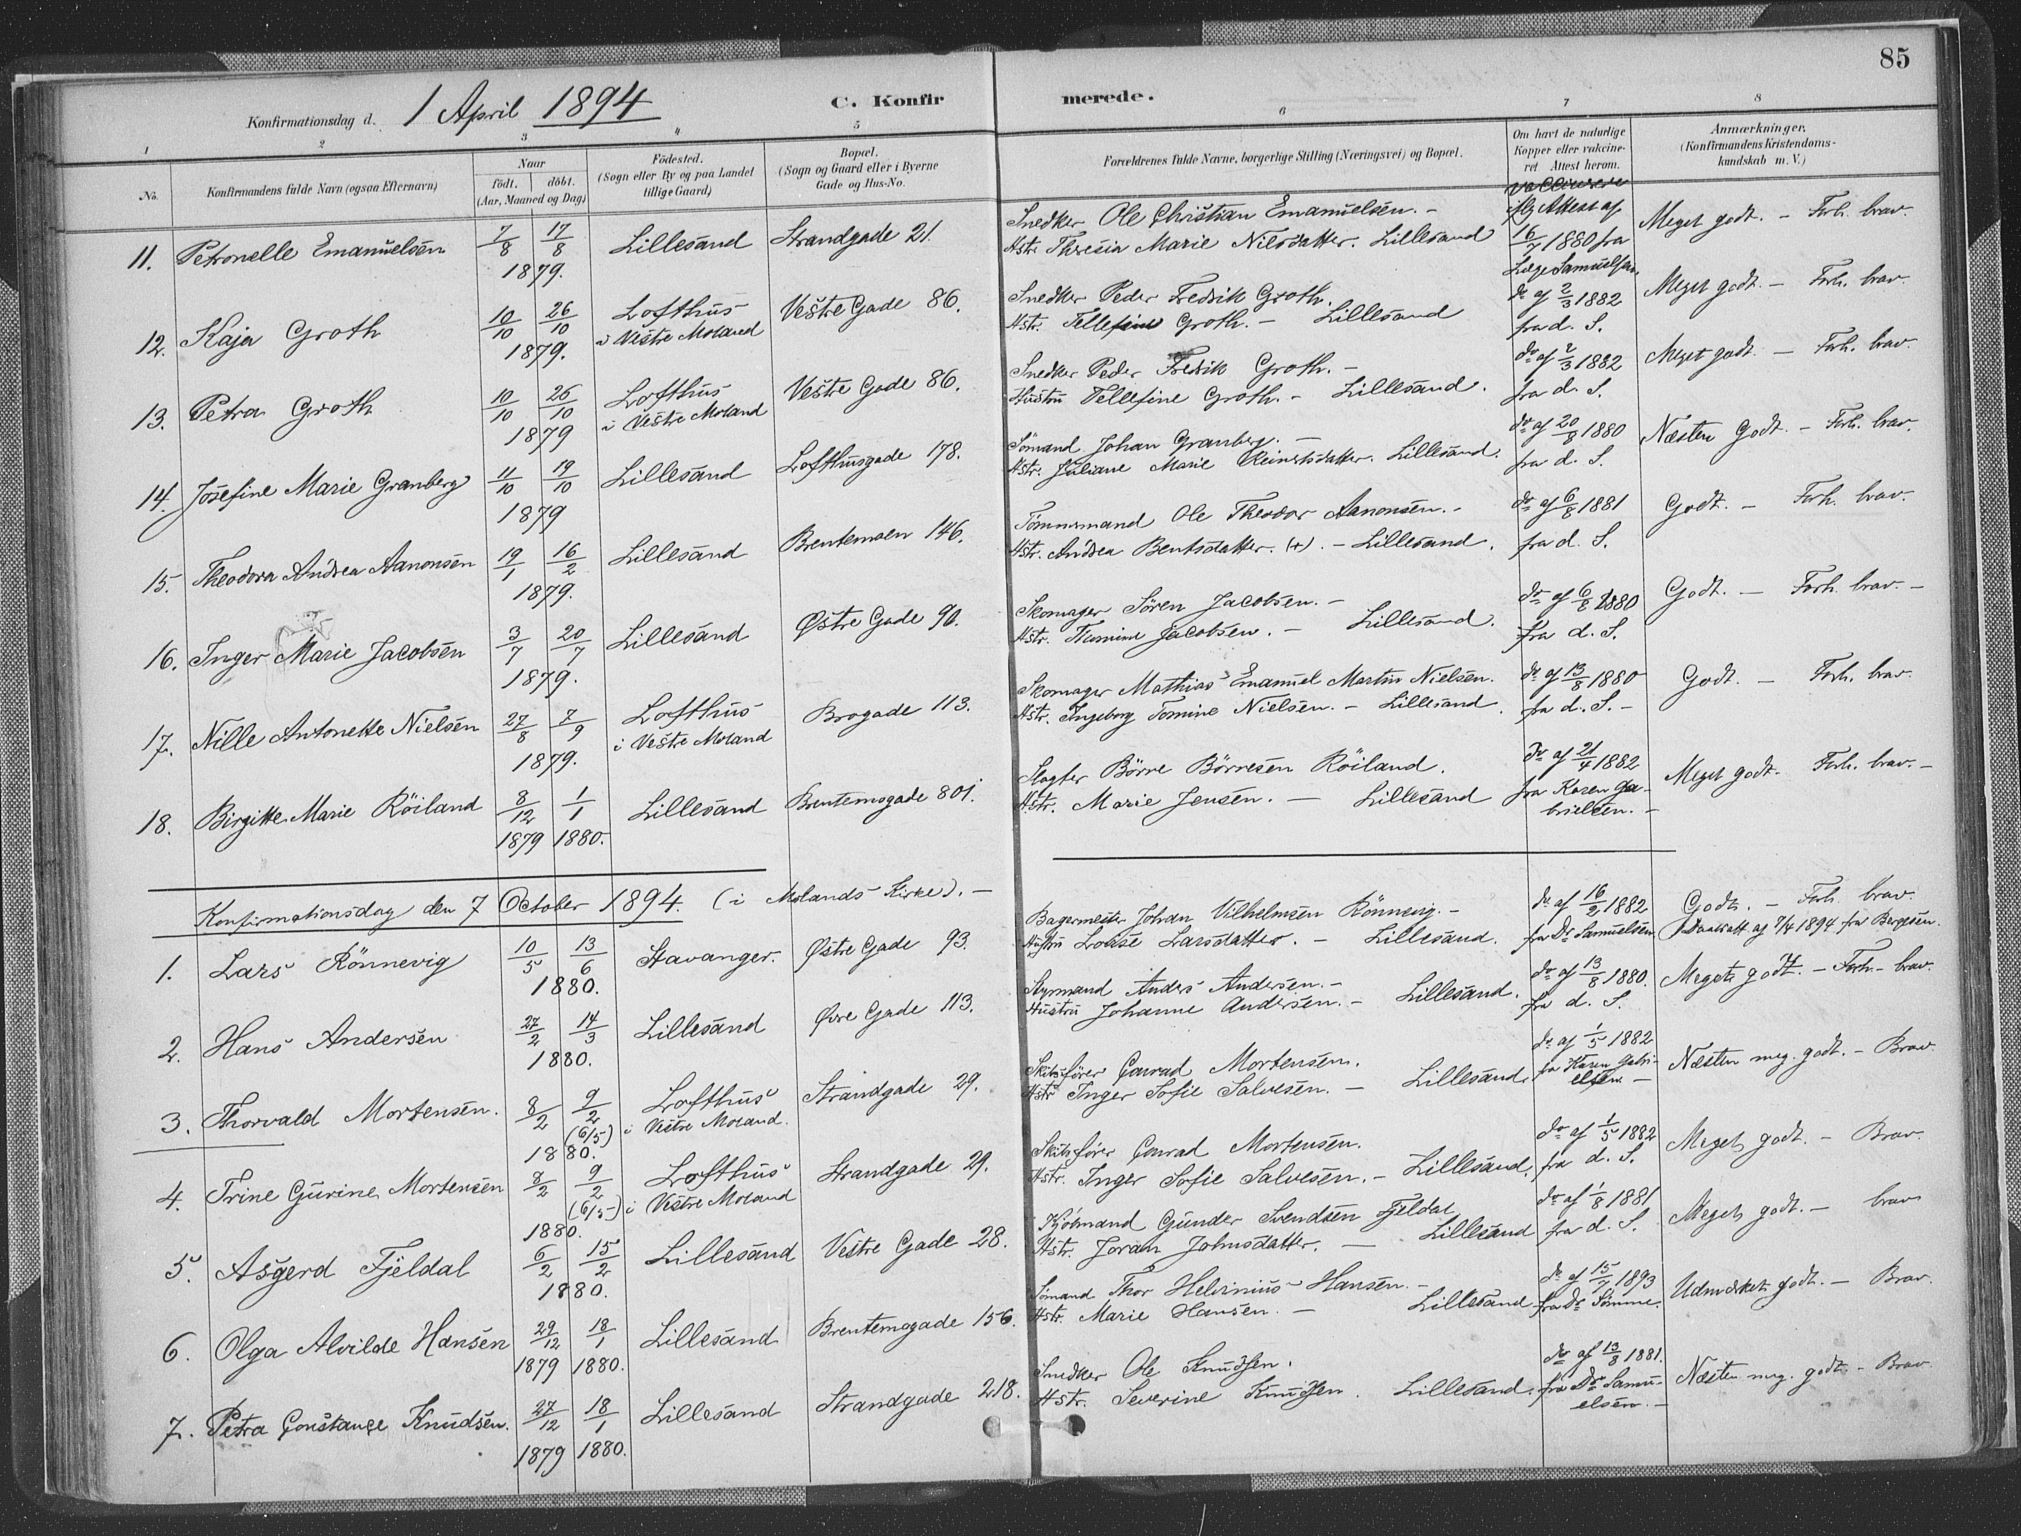 85
Konfirmationsdag d. 1 April 1894 C. Konfirmerede.
1 2 3 4 5 6 7 8
No. Konfirmandens fulde Navn (ogsaa Efternavn) Naar födt. döbt. (Aar, Maaned og Dag) Födested. (Sogn eller By og paa Landet tillige Gaard) Bopæl. (Sogn og Gaard eller i Byerne Gade og Hus-No. Forældrenes fulde Navne, borgerlige Stilling (Næringsvei) og Bopæl. Om havt de naturlige Kopper eller vakcineret. Attest herom. Anmærkninger. (Konfirmandens Kristendomskundskab m. V.)
11. Petronelle Emanuelsen 7/8 17/8 1879. Lillesand Strandgade 21.
Snedker Ole Christian Emanuelsen. -
Hstr. Theresia Marie Nilsdatter. Lillesand
iflg Attest af 16/7 1880 fra Læge Samuelsen
Meget godt. - Forh. brav.
12. Kaja Groth 10/10 26/10 1879. Lofthus i Vestre Moland Vestre Gade 86.
Snedker Peder Fredrik Groth.
Hstr. Tellefine Groth. - Lillesand
do af 2/3 1882 fra d. S.
Meget godt. - Forh. brav.
13. Petra Groth 10/10 26/10 1879 Lofthus i Vestre Moland Vestre Gade 86.
Snedker Peder Fredrik Groth. -
Hustru Tellefine Groth. - Lillesand.
do af 2/3 1882 fra d. S.
Meget godt. - Forh. brav.
14. Josefine Marie Granberg 11/10 19/10 1879 Lillesand Lofthusgade 178.
Sömand Johan Granberg. -
Hstr. Juliane Marie Reinertsdatter. Lillesand.
do af 20/8 1880 fra d. S.
Næsten Godt. - Forh. brav.
15. Theodora Andrea Aanonsen 19/1 16/2 1879. Lillesand Brentemoen 146.
Tömmermand Ole Theodor Aanonsen. -
Hstr. Andrea Bentsdatter. (+). - Lillesand.
do af 6/8 1881 fra d. S.
Godt. - Forh. brav.
16. Inger Marie Jacobsen 3/7 20/7 1879. Lillesand Østre Gade 90.
Skomager Sören Jacobsen. -
Hstr. Jacobsen. - Lillesand.
do af 6/8 1880 fra d. S.
Godt. - Forh. brav. -
17. Nille Antonette Nielsen 27/8 7/9 1879. Lofthus i Vestre Moland Brogade 113.
Skomager Mathias Emanuel Martin Nielsen.
Hstr. Ingeborg Tomine Nielsen. - Lillesand.
do af 13/8 1880 fra d. S. -
Godt. - Forh. brav.
18. Birgitte Marie Röiland 8/12 1/1 1879 1880. Lillesand Brentemogade 801.
Slagter Börre Börresen Röiland.
Hstr. Marie Jensen. - Lillesand
do af 21/4 1882 fra Karen Gabrielsen. -
Meget godt. - Forh. brav. -
Konfirmationsdag den 7 October 1894. (i Molands Kirke). -
1. Lars Rönnevig 10/5 13/6 1880. Stavanger. Østre Gade 93.
Bagermester Johan Vilhelmsen Rönnevig. -
Hustru Lovise Larsdatter. - Lillesand.
do af 16/2 1882 fra Dr Samuelsen
Godt. - Forh. brav.
Daabsatt af 7/4 1894 fra Bergesen.
2. Hans Andersen 27/2 14/3 1880. Lillesand Øvre Gade 113.
Styrmand Anders Andersen. -
Hustru Johanne Andersen. - Lillesand.
do af 13/8 1880. fra d. S.
Meget godt. - Forh. brav.
3. Thorvald Mortensen. 8/2 9/2 (6/5) 1880. Lofthus i Vestre Moland. Strandgade 29.
Skibsförer Conrad Mortensen.
Hstr Inger Sofie Salvesen. - Lillesand.
do af 1/5 1882 fra Karen Gabrielsen. -
Næsten meg. godt. - Brav.
4. Trine Gurine Mortensen 8/2 9/2 (6/5) 1880. Lofthus i Vestre Moland Strandgade 29.
Skibsförer Conrad Mortensen.
Hstr. Inger Sofie Salvesen. - Lillesand.
do af 1/5 1882 fra d. S.
Meget godt. - Brav.
5. Asgerd Fjeldal 6/2 15/2 1880. Lillesand Vestre Gade 28.
Kjöbmand Gunder Svendsen Fjeldal
Hstr. Joran Johnsdatter. - Lillesand
do af 1/8 1881 fra d. S.
Meget godt. - brav
6. Olga Alvilde Hansen 29/12 18/1 1879 1880. Lillesand Brentemogade 156.
Sömand Thor Helvinius Hansen. -
Hstr. Marie Hansen. - Lillesand
do af 15/7 1893 fra Dr Sömme.
Udmærket godt. - Brav.
7. Petra Constance Knudsen. 27/12 18/1 1879 1880. Lillesand Strandgade 218.
Snedker Ole Knudsen.
Hstr. Severine Knudsen. Lillesand.
do af 13/8 1881. fra Dr Samuelsen. -
Næsten meg. godt. - Brav.